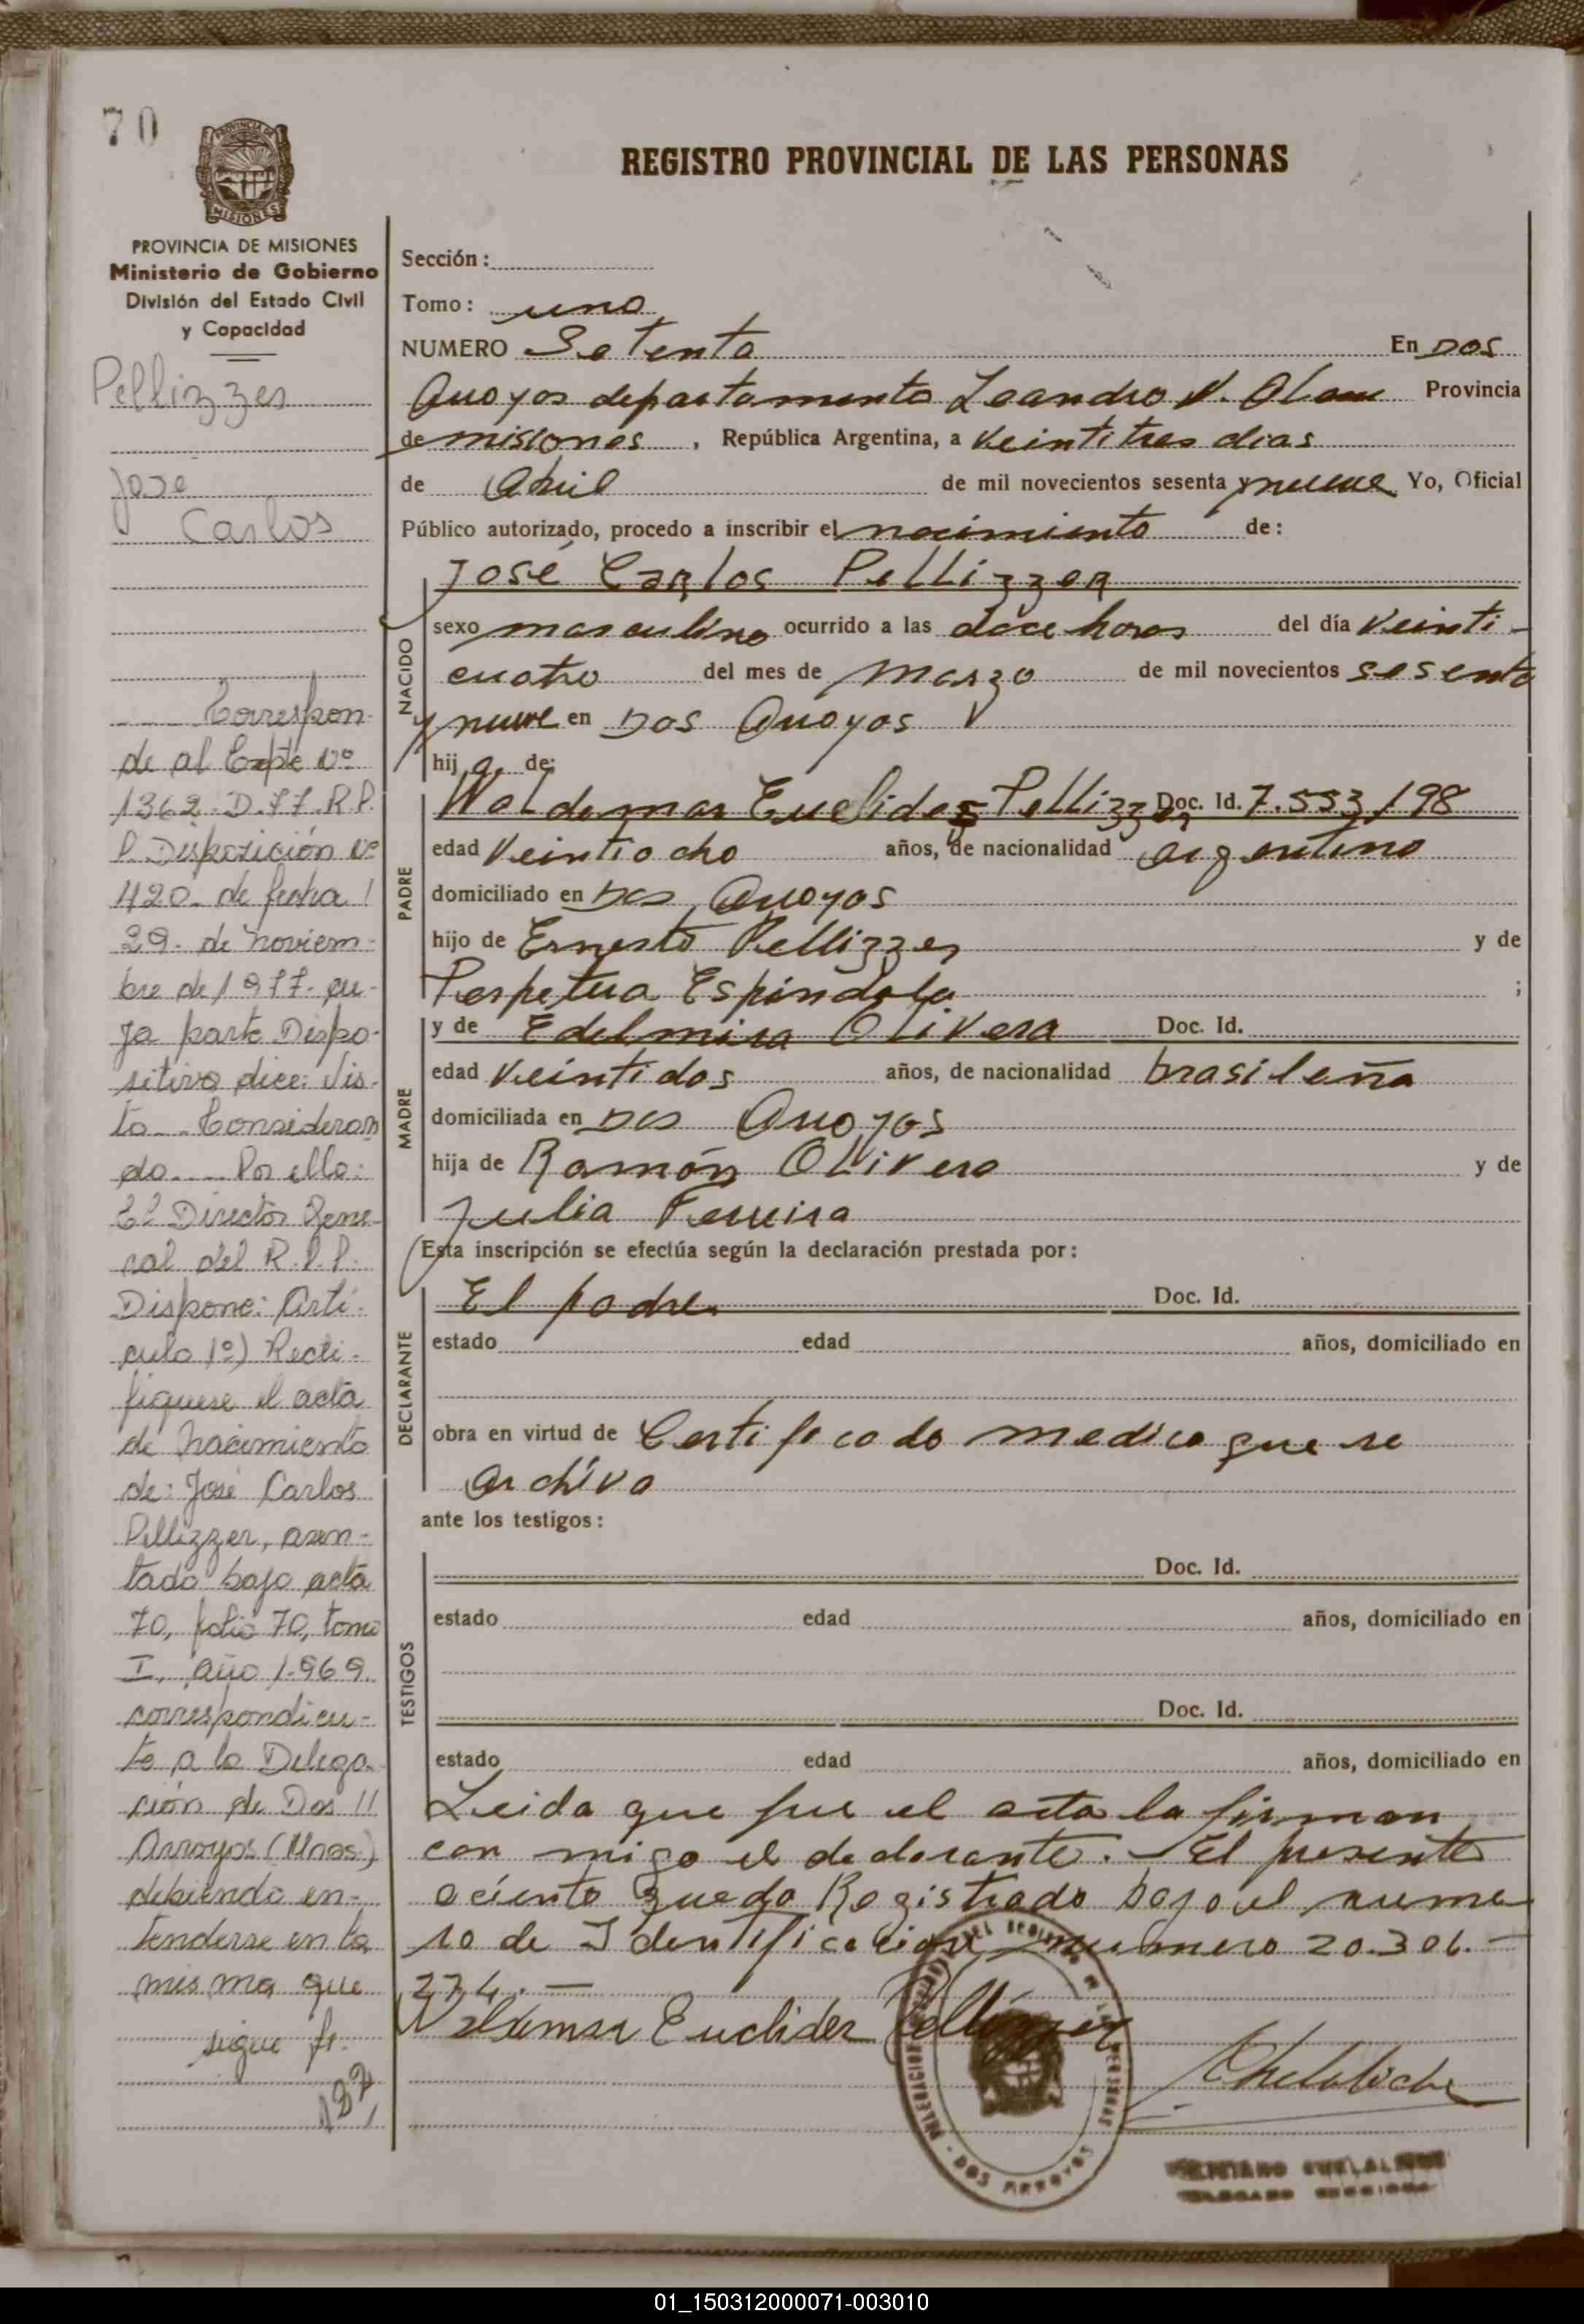 70
PROVINCIA DE MISIONES
MISIONES
REGISTRO PROVINCIAL DE LAS PERSONAS
PROVINCIA DE MISIONES
Ministerio de Gobierno
División del Estado Civil
y Capacidad
Pellizzer
Jose
Carlos
Correspon-
de al Expte Nº
1362. D. 77. R.P.
P. Disposición Nº
420. de fecha
29. de noviem-
bre de 1977. cu-
ya parte Dispo-
sitiva dice: Vis-
to... Consideran
do.... Por ello:
El Director Gene-
ral del R.P.P.
Dispone: Artí-
culo 1º) Recti-
fíquese el acta
de nacimiento
de: José Carlos
Pellizzer, asen-
tado bajo acta
70, folio 70, tomo
I, año 1.969.
correspondien-
te a la Delega-
ción de Dos
Arroyos (Mnes)
debiendo en-
tenderse en la
misma que
sigue fº.
132
Sección:
Tomo: uno
NUMERO Setenta En DOS
Arroyos departamento Leandro N. Alem Provincia
de misiones, República Argentina, a veintitres dias
de Abril de mil novecientos sesenta y nueve Yo, Oficial
Público autorizado, procedo a inscribir el nacimiento de:
José Carlos Pellizzer
NACIDO
sexo masculino ocurrido a las doce horas del día veinti-
cuatro del mes de marzo de mil novecientos sesenta
y nueve en Dos Arroyos
hijo de:
PADRE
Waldemar Euclides Pellizzer Doc. Id. 7.553.198
edad veintiocho años, de nacionalidad argentino
domiciliado en Dos Arroyos
hijo de Ernesto Pellizzer y de
Perpetua Espindola ;
MADRE
y de Edelmira Olivera Doc. Id.
edad veintidos años, de nacionalidad brasileña
domiciliada en Dos Arroyos
hija de Ramón Olivera y de
Julia Ferreira
Esta inscripción se efectúa según la declaración prestada por:
DECLARANTE
El padre Doc. Id.
estado edad años, domiciliado en
obra en virtud de Certificado medico que se
archiva
ante los testigos:
TESTIGOS
Doc. Id.
estado edad años, domiciliado en
Doc. Id.
estado edad años, domiciliado en
Leida que fue el acta la firman
con migo el declarante. El presente
aciento queda Registrado bajo el nume
ro de Identificacion numero 20.306.-
274.-
Waldemar Euclides Pellizzer
DOS ARROYOS
01_150312000071-003010